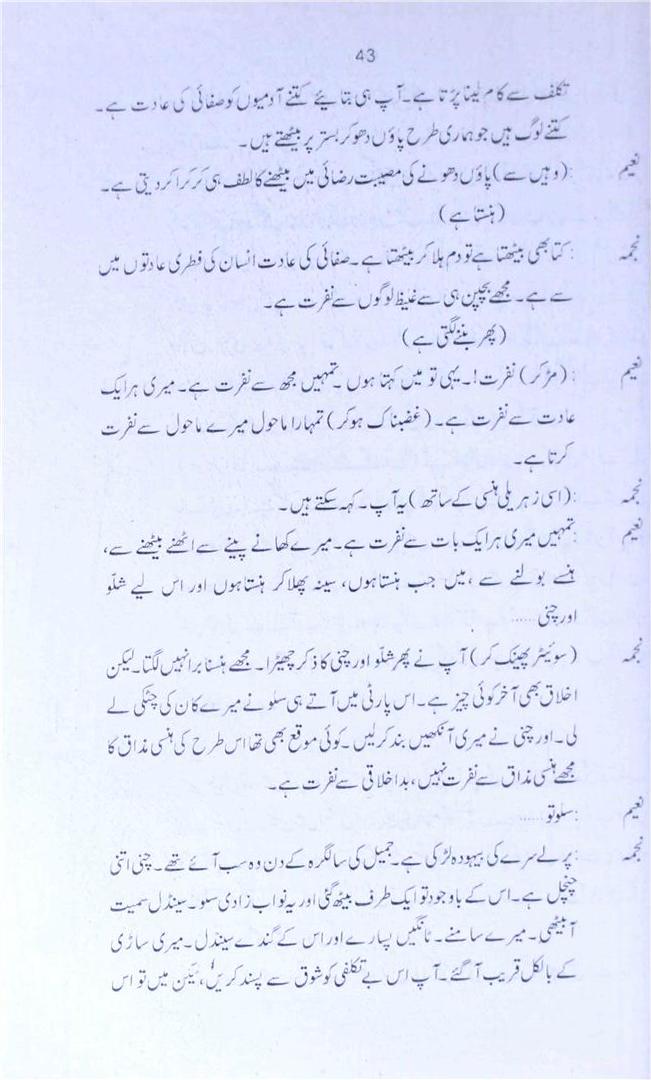 43
تکلف سے کام لینا پڑتا ہے۔ آپ ہی بتایئے کتنے آدمیوں کو صفائی کی عادت ہے۔
کتنے لوگ ہیں جو ہماری طرح پاؤں دھو کر بستر پر بیٹھتے ہیں۔
نعیم :(وہیں سے) پاؤں دھونے کی مصیبت رضائی میں بیٹھنے کا لطف ہی کرکرا کر دیتی ہے۔
(ہنستا ہے)
نجمہ :کتا بھی بیٹھتا ہے تو دم ہلا کر بیٹھتا ہے۔ صفائی کی عادت انسان کی فطری عادتوں میں
سے ہے۔ مجھے بچپن ہی سے غلیظ لوگوں سے نفرت ہے۔
(پھر بننے لگتی ہے)
نعیم :(مڑ کر) نفرت!۔ یہی تو میں کہتا ہوں۔ تمہیں مجھ سے نفرت ہے۔ میری ہر ایک
عادت سے نفرت ہے۔ (غضبناک ہو کر) تمہارا ماحول میرے ماحول سے نفرت
کرتا ہے۔
نجمہ :(اسی زہریلی ہنسی کے ساتھ) یہ آپ۔ کہہ سکتے ہیں۔
نعیم :تمہیں میری ہر ایک بات سے نفرت ہے۔ میرے کھانے پینے سے اٹھنے بیٹھنے سے،
ہنسے بولنے سے، میں جب ہنستا ہوں، سینہ پھلا کر ہنستا ہوں اور اس لیے شلّو
اور چنی......
نجمہ (سوئیٹر پھینک کر) آپ نے پھر شلّو اور چنی کا ذکر چھیڑا۔ مجھے ہنسنا برا نہیں لگتا۔ لیکن
اخلاق بھی آخر کوئی چیز ہے۔ اس پارٹی میں آتے ہی سلو نے میرے کان کی چٹکی لے
لی۔ اور چنی نے میری آنکھیں بند کر لیں۔ کوئی موقع بھی تھا اس طرح کی ہنسی مذاق کا
مجھے ہنسی مذاق سے نفرت نہیں، بداخلاقی سے نفرت ہے۔
نعیم :سلو تو......
نجمہ :پرلے سرے کی بیہودہ لڑکی ہے۔ جمیل کی سالگرہ کے دن وہ سب آئے تھے۔ چنی اتنی
چنچل ہے۔ اس کے باوجود تو ایک طرف بیٹھ گئی اور یہ نواب زادی سلو۔ سینڈل سمیت
آ بیٹھی۔ میرے سامنے۔ ٹانگیں پسارے اور اس کے گندے سینڈل۔ میری ساڑی
کے بالکل قریب آ گئے۔ آپ اس بے تکلفی کو شوق سے پسند کریں، لیکن میں تو اس